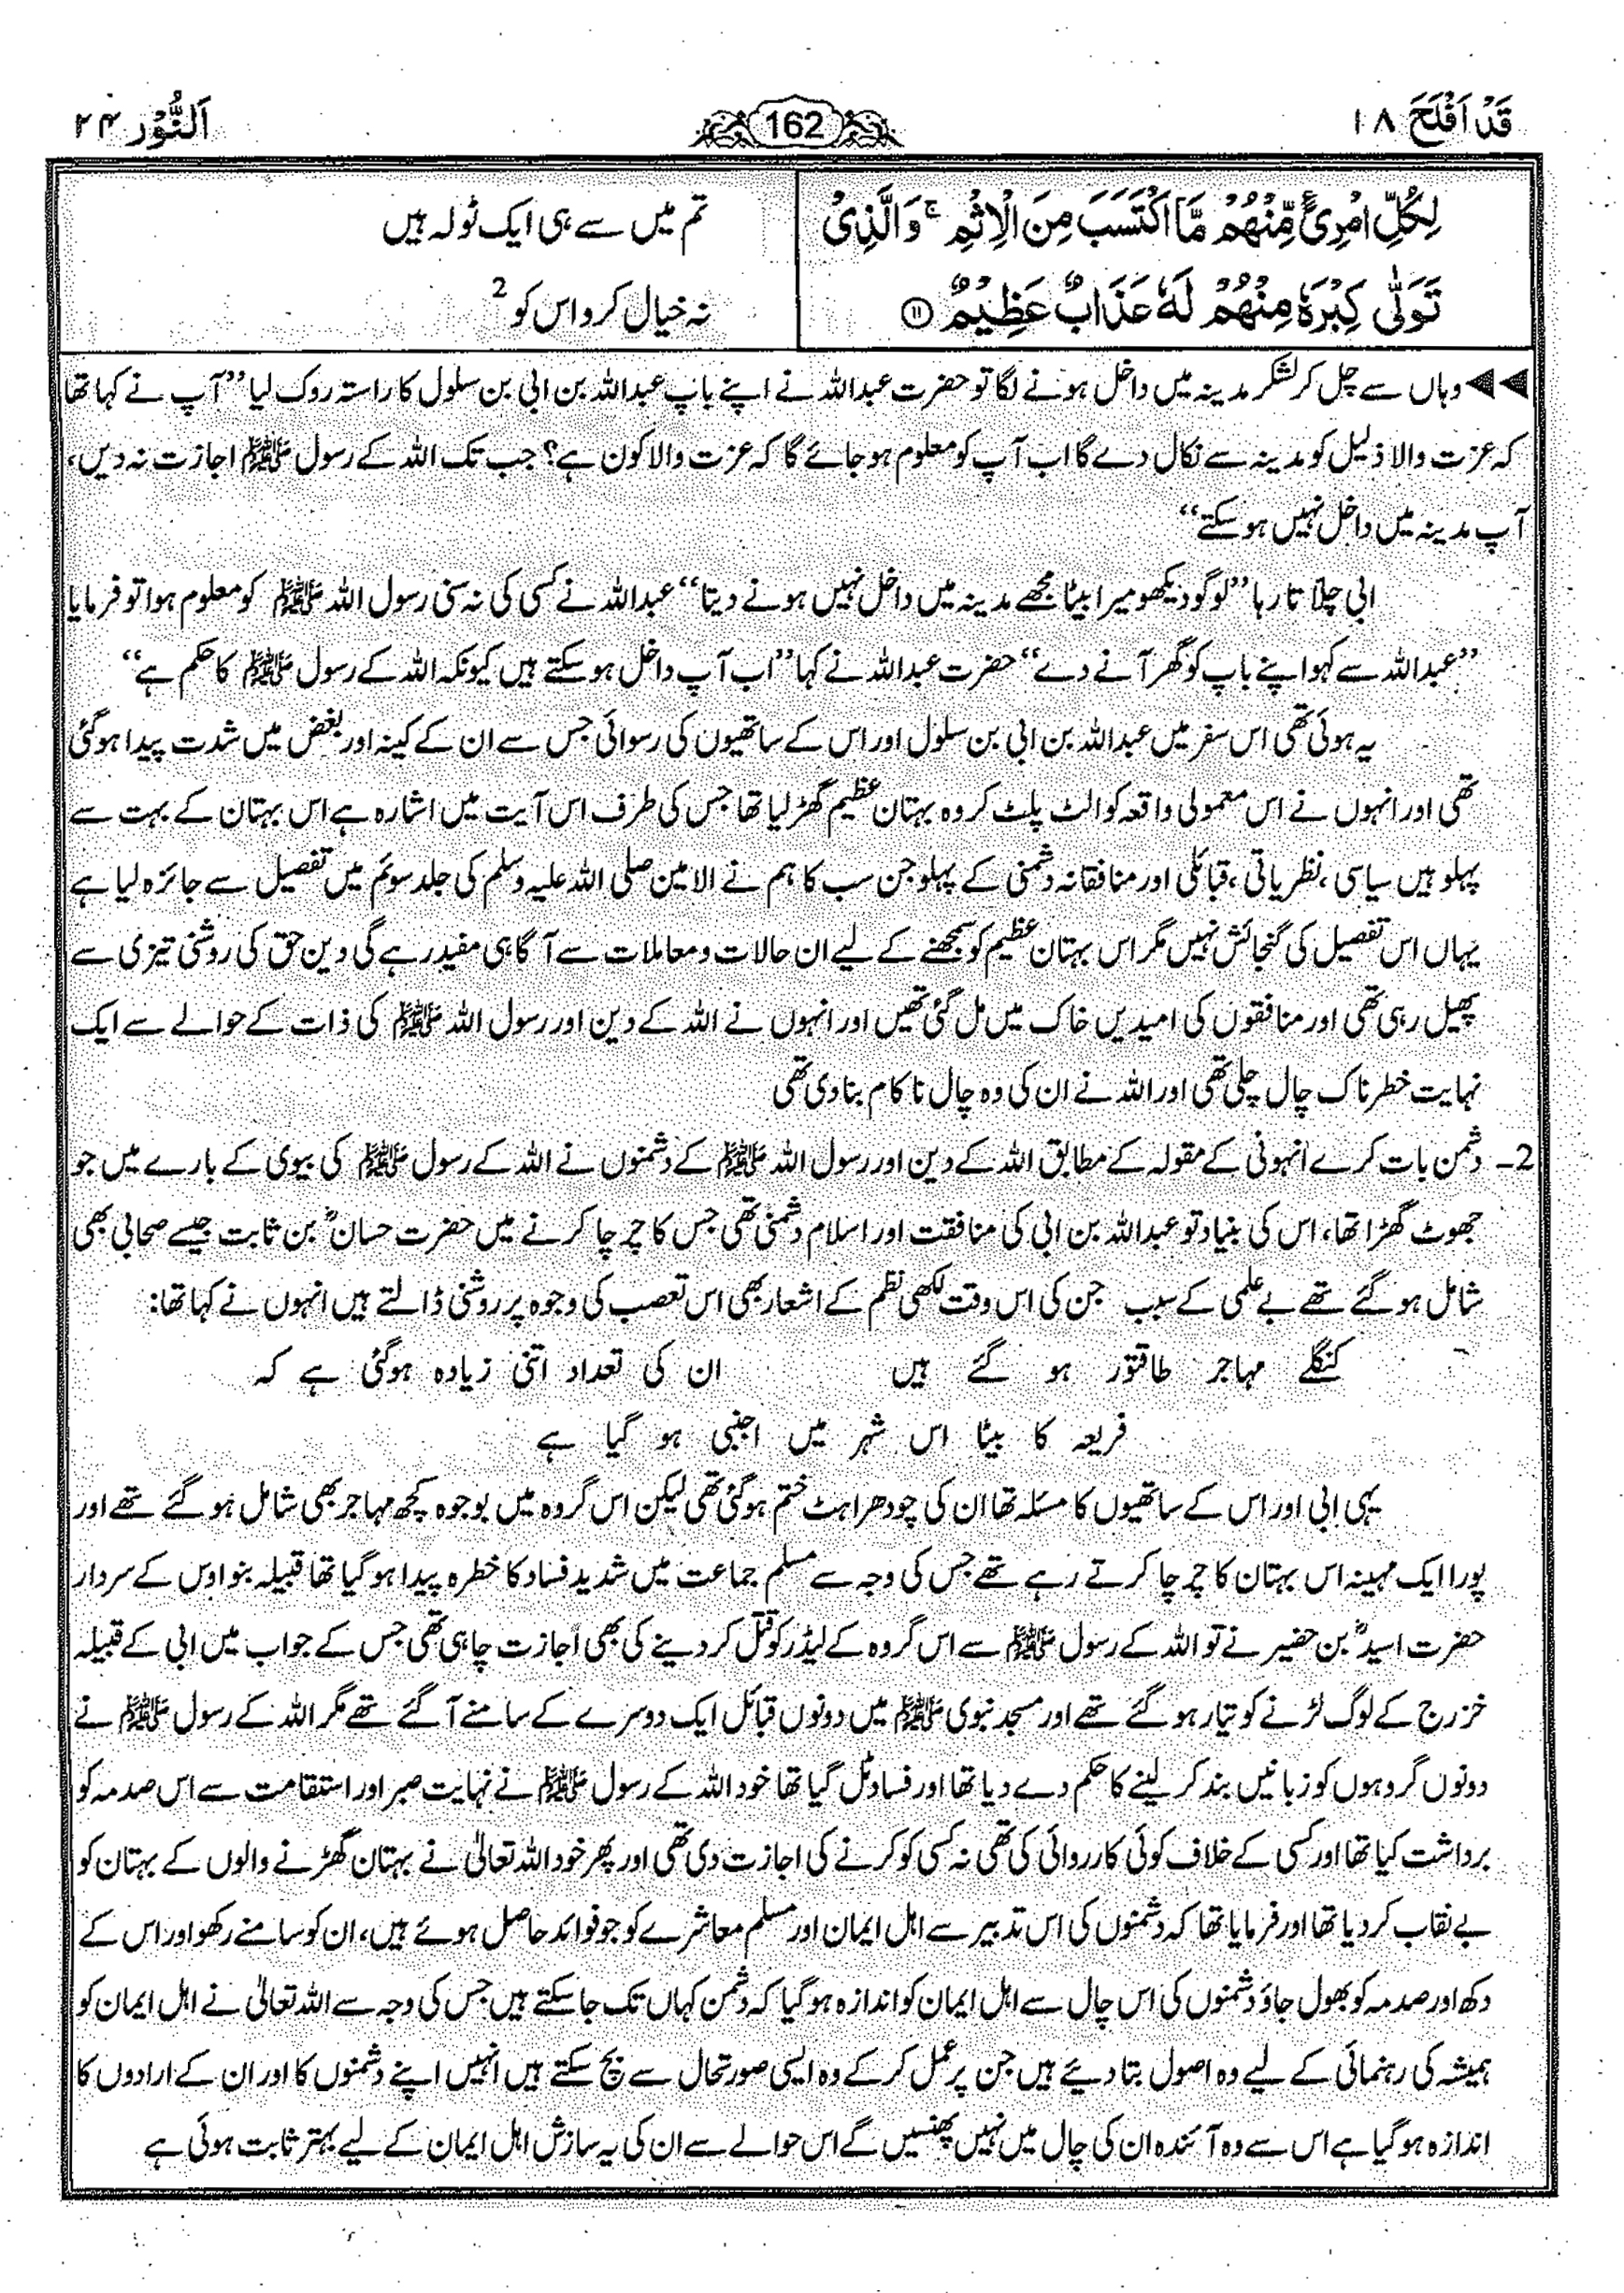 قَدْ اَفْلَحَ ۱۸
162
اَلنُّوْر ۲۴
لِكُلِّ امْرِئٍ مِّنْهُمْ مَّا اكْتَسَبَ مِنَ الْاِثْمِ ۚ وَالَّذِیْ
تَوَلّٰی كِبْرَهٗ مِنْهُمْ لَهٗ عَذَابٌ عَظِیْمٌ ۝۱۱
تم میں سے ہی ایک ٹولہ ہیں
نہ خیال کرو اس کو 2
◀◀ وہاں سے چل کر لشکر مدینہ میں داخل ہونے لگا تو حضرت عبداللہ نے اپنے باپ عبداللہ بن ابی بن سلول کا راستہ روک لیا ’’آپ نے کہا تھا
کہ عزت والا ذلیل کو مدینہ سے نکال دے گا اب آپ کو معلوم ہو جائے گا کہ عزت والا کون ہے؟ جب تک اللہ کے رسول ﷺ اجازت نہ دیں،
آپ مدینہ میں داخل نہیں ہو سکتے‘‘
ابی چلاتا رہا ’’لوگو دیکھو میرا بیٹا مجھے مدینہ میں داخل نہیں ہونے دیتا‘‘ عبداللہ نے کسی کی نہ سنی رسول اللہ ﷺ کو معلوم ہوا تو فرمایا
’’عبداللہ سے کہو اپنے باپ کو گھر آنے دے‘‘ حضرت عبداللہ نے کہا ’’اب آپ داخل ہو سکتے ہیں کیونکہ اللہ کے رسول ﷺ کا حکم ہے‘‘
یہ ہوئی تھی اس سفر میں عبداللہ بن ابی بن سلول اور اس کے ساتھیوں کی رسوائی جس سے ان کے کینہ اور بغض میں شدت پیدا ہوگئی
تھی اور انہوں نے اس معمولی واقعہ کو الٹ پلٹ کر وہ بہتان عظیم گھڑ لیا تھا جس کی طرف اس آیت میں اشارہ ہے اس بہتان کے بہت سے
پہلو ہیں سیاسی، نظریاتی، قبائلی اور منافقانہ دشمنی کے پہلو جن سب کا ہم نے الامین صلی اللہ علیہ وسلم کی جلد سوئم میں تفصیل سے جائزہ لیا ہے
یہاں اس تفصیل کی گنجائش نہیں مگر اس بہتان عظیم کو سمجھنے کے لیے ان حالات و معاملات سے آگاہی مفید رہے گی دین حق کی روشنی تیزی سے
پھیل رہی تھی اور منافقوں کی امیدیں خاک میں مل گئی تھیں اور انہوں نے اللہ کے دین اور رسول اللہ ﷺ کی ذات کے حوالے سے ایک
نہایت خطرناک چال چلی تھی اور اللہ نے ان کی وہ چال ناکام بنا دی تھی
2۔ دشمن بات کرے انہونی کے مقولہ کے مطابق اللہ کے دین اور رسول اللہ ﷺ کے دشمنوں نے اللہ کے رسول ﷺ کی بیوی کے بارے میں جو
جھوٹ گھڑا تھا، اس کی بنیاد تو عبداللہ بن ابی کی منافقت اور اسلام دشمنی تھی جس کا چرچا کرنے میں حضرت حسانؓ بن ثابت جیسے صحابی بھی
شامل ہو گئے تھے بے علمی کے سبب جن کی اس وقت لکھی نظم کے اشعار بھی اس تعصب کی وجوہ پر روشنی ڈالتے ہیں انہوں نے کہا تھا:
کنگلے مہاجر طاقتور ہو گئے ہیں ان کی تعداد اتنی زیادہ ہوگئی ہے کہ
فریعہ کا بیٹا اس شہر میں اجنبی ہو گیا ہے
یہی ابی اور اس کے ساتھیوں کا مسئلہ تھا ان کی چودھراہٹ ختم ہوگئی تھی لیکن اس گروہ میں بوجوہ کچھ مہاجر بھی شامل ہو گئے تھے اور
پورا ایک مہینہ اس بہتان کا چرچا کرتے رہے تھے جس کی وجہ سے مسلم جماعت میں شدید فساد کا خطرہ پیدا ہو گیا تھا قبیلہ بنو اوس کے سردار
حضرت اسیدؓ بن حضیر نے تو اللہ کے رسول ﷺ سے اس گروہ کے لیڈر کو قتل کر دینے کی بھی اجازت چاہی تھی جس کے جواب میں ابی کے قبیلہ
خزرج کے لوگ لڑنے کو تیار ہو گئے تھے اور مسجد نبوی ﷺ میں دونوں قبائل ایک دوسرے کے سامنے آ گئے تھے مگر اللہ کے رسول ﷺ نے
دونوں گروہوں کو زبانیں بند کر لینے کا حکم دے دیا تھا اور فساد ٹل گیا تھا خود اللہ کے رسول ﷺ نے نہایت صبر اور استقامت سے اس صدمہ کو
برداشت کیا تھا اور کسی کے خلاف کوئی کارروائی کی تھی نہ کسی کو کرنے کی اجازت دی تھی اور پھر خود اللہ تعالیٰ نے بہتان گھڑنے والوں کے بہتان کو
بے نقاب کر دیا تھا اور فرمایا تھا کہ دشمنوں کی اس تدبیر سے اہل ایمان اور مسلم معاشرے کو جو فوائد حاصل ہوئے ہیں، ان کو سامنے رکھو اور اس کے
دکھ اور صدمہ کو بھول جاؤ دشمنوں کی اس چال سے اہل ایمان کو اندازہ ہو گیا کہ دشمن کہاں تک جا سکتے ہیں جس کی وجہ سے اللہ تعالیٰ نے اہل ایمان کو
ہمیشہ کی رہنمائی کے لیے وہ اصول بتا دیئے ہیں جن پر عمل کر کے وہ ایسی صورتحال سے بچ سکتے ہیں انہیں اپنے دشمنوں کا اور ان کے ارادوں کا
اندازہ ہو گیا ہے اس سے وہ آئندہ ان کی چال میں نہیں پھنسیں گے اس حوالے سے ان کی یہ سازش اہل ایمان کے لیے بہتر ثابت ہوئی ہے